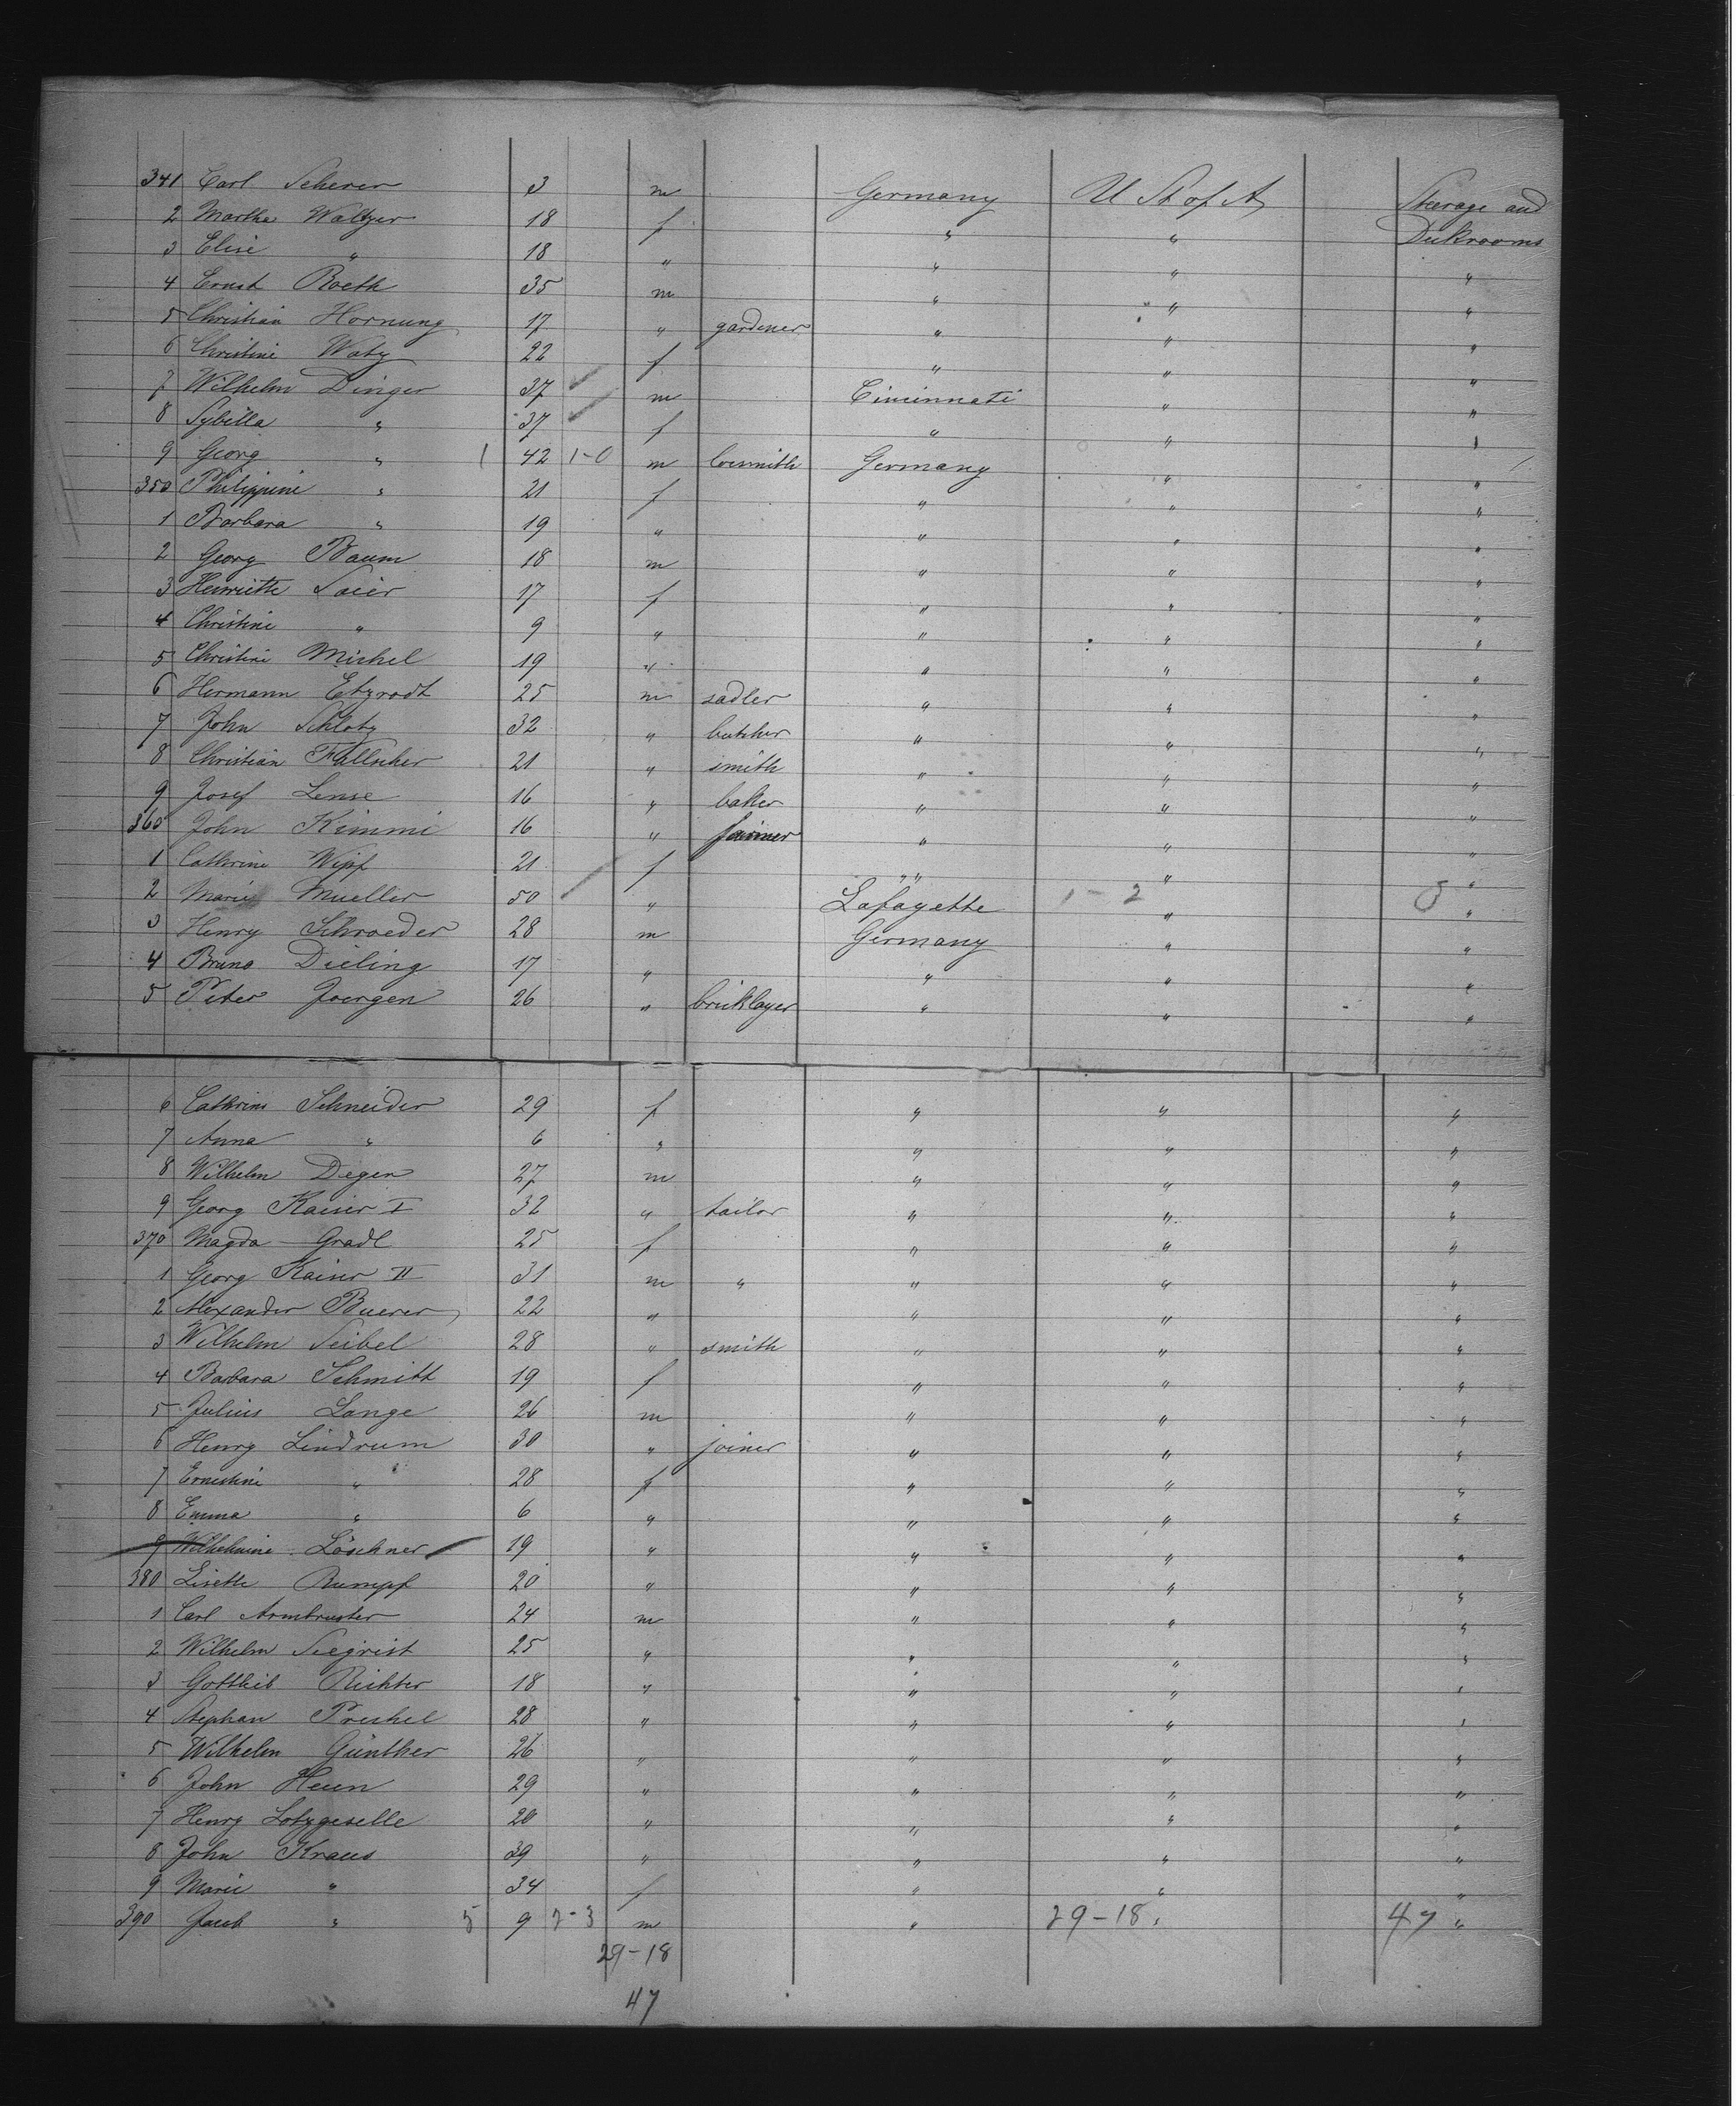 341 Carl Scherer 3 m Germany U St of A Steerage and
2 Martha Waltzer 18 f " " Deckrooms
3 Elise " 18 " " " "
4 Ernst Roeth 35 m " " "
5 Christian Hornung 17 " gardener " " "
6 Christine Watz 22 f " " "
7 Wilhelm Dinger 37 m Cincinnati " "
8 Sybilla " 37 f " " "
9 Georg " 1 42 1-0 m locsmith Germany " "
350 Philippine " 21 f " " "
1 Barbara " 19 " " " "
2 Georg Baum 18 m " " "
3 Henriette Saier 17 f " " "
4 Christine " 9 " " " "
5 Christine Michel 19 " " " "
6 Hermann Etzrodt 25 m sadler " " "
7 John Schlotz 32 " butcher " " "
8 Christian Fallscher 21 " smith " " "
9 Josef Lense 16 " baker " " "
360 John Kimmi 16 " " " "
1 Cathrine Wipf 21 f " " "
2 Marie Mueller 50 " Lafayette 1-2 " "
3 Henry Schroeder 28 m Germany " "
4 Bruno Dieling 17 " " " "
5 Peter Joergen 26 " bricklayer " " "
6 Cathrine Schneider 29 f " " "
7 Anna " 6 " " " "
8 Wilhelm Degen 27 m " " "
9 Georg Kaiser I 32 " tailor " " "
370 Magda Gradl 25 f " " "
1 Georg Kaiser II 31 m " " " "
2 Alexander Buerer 22 " " " "
3 Wilhelm Seibel 28 " smith " " "
4 Barbara Schmitt 19 f " " "
5 Julius Lange 26 m " " "
6 Henry Lindrum 30 " joiner " " "
7 Ernestine " 28 f " " "
8 Emma " 6 " " " "
9 Wilhelmine Löschner 19 " " " "
380 Lisette Rumpf 20 " " " "
1 Carl Armbruster 24 m " " "
2 Wilhelm Seegrist 25 " " " "
3 Gottlieb Richter 18 " " " "
4 Stephan Prechel 28 " " " "
5 Wilhelm Günther 26 " " " "
6 John Heun 29 " " " "
7 Henry Lotzgeselle 20 " " " "
8 John Kraus 39 " " " "
9 Marie " 34 f " " "
390 Jacob " 5 9 2-3 m " 29-18 " 47 "
29-18
47